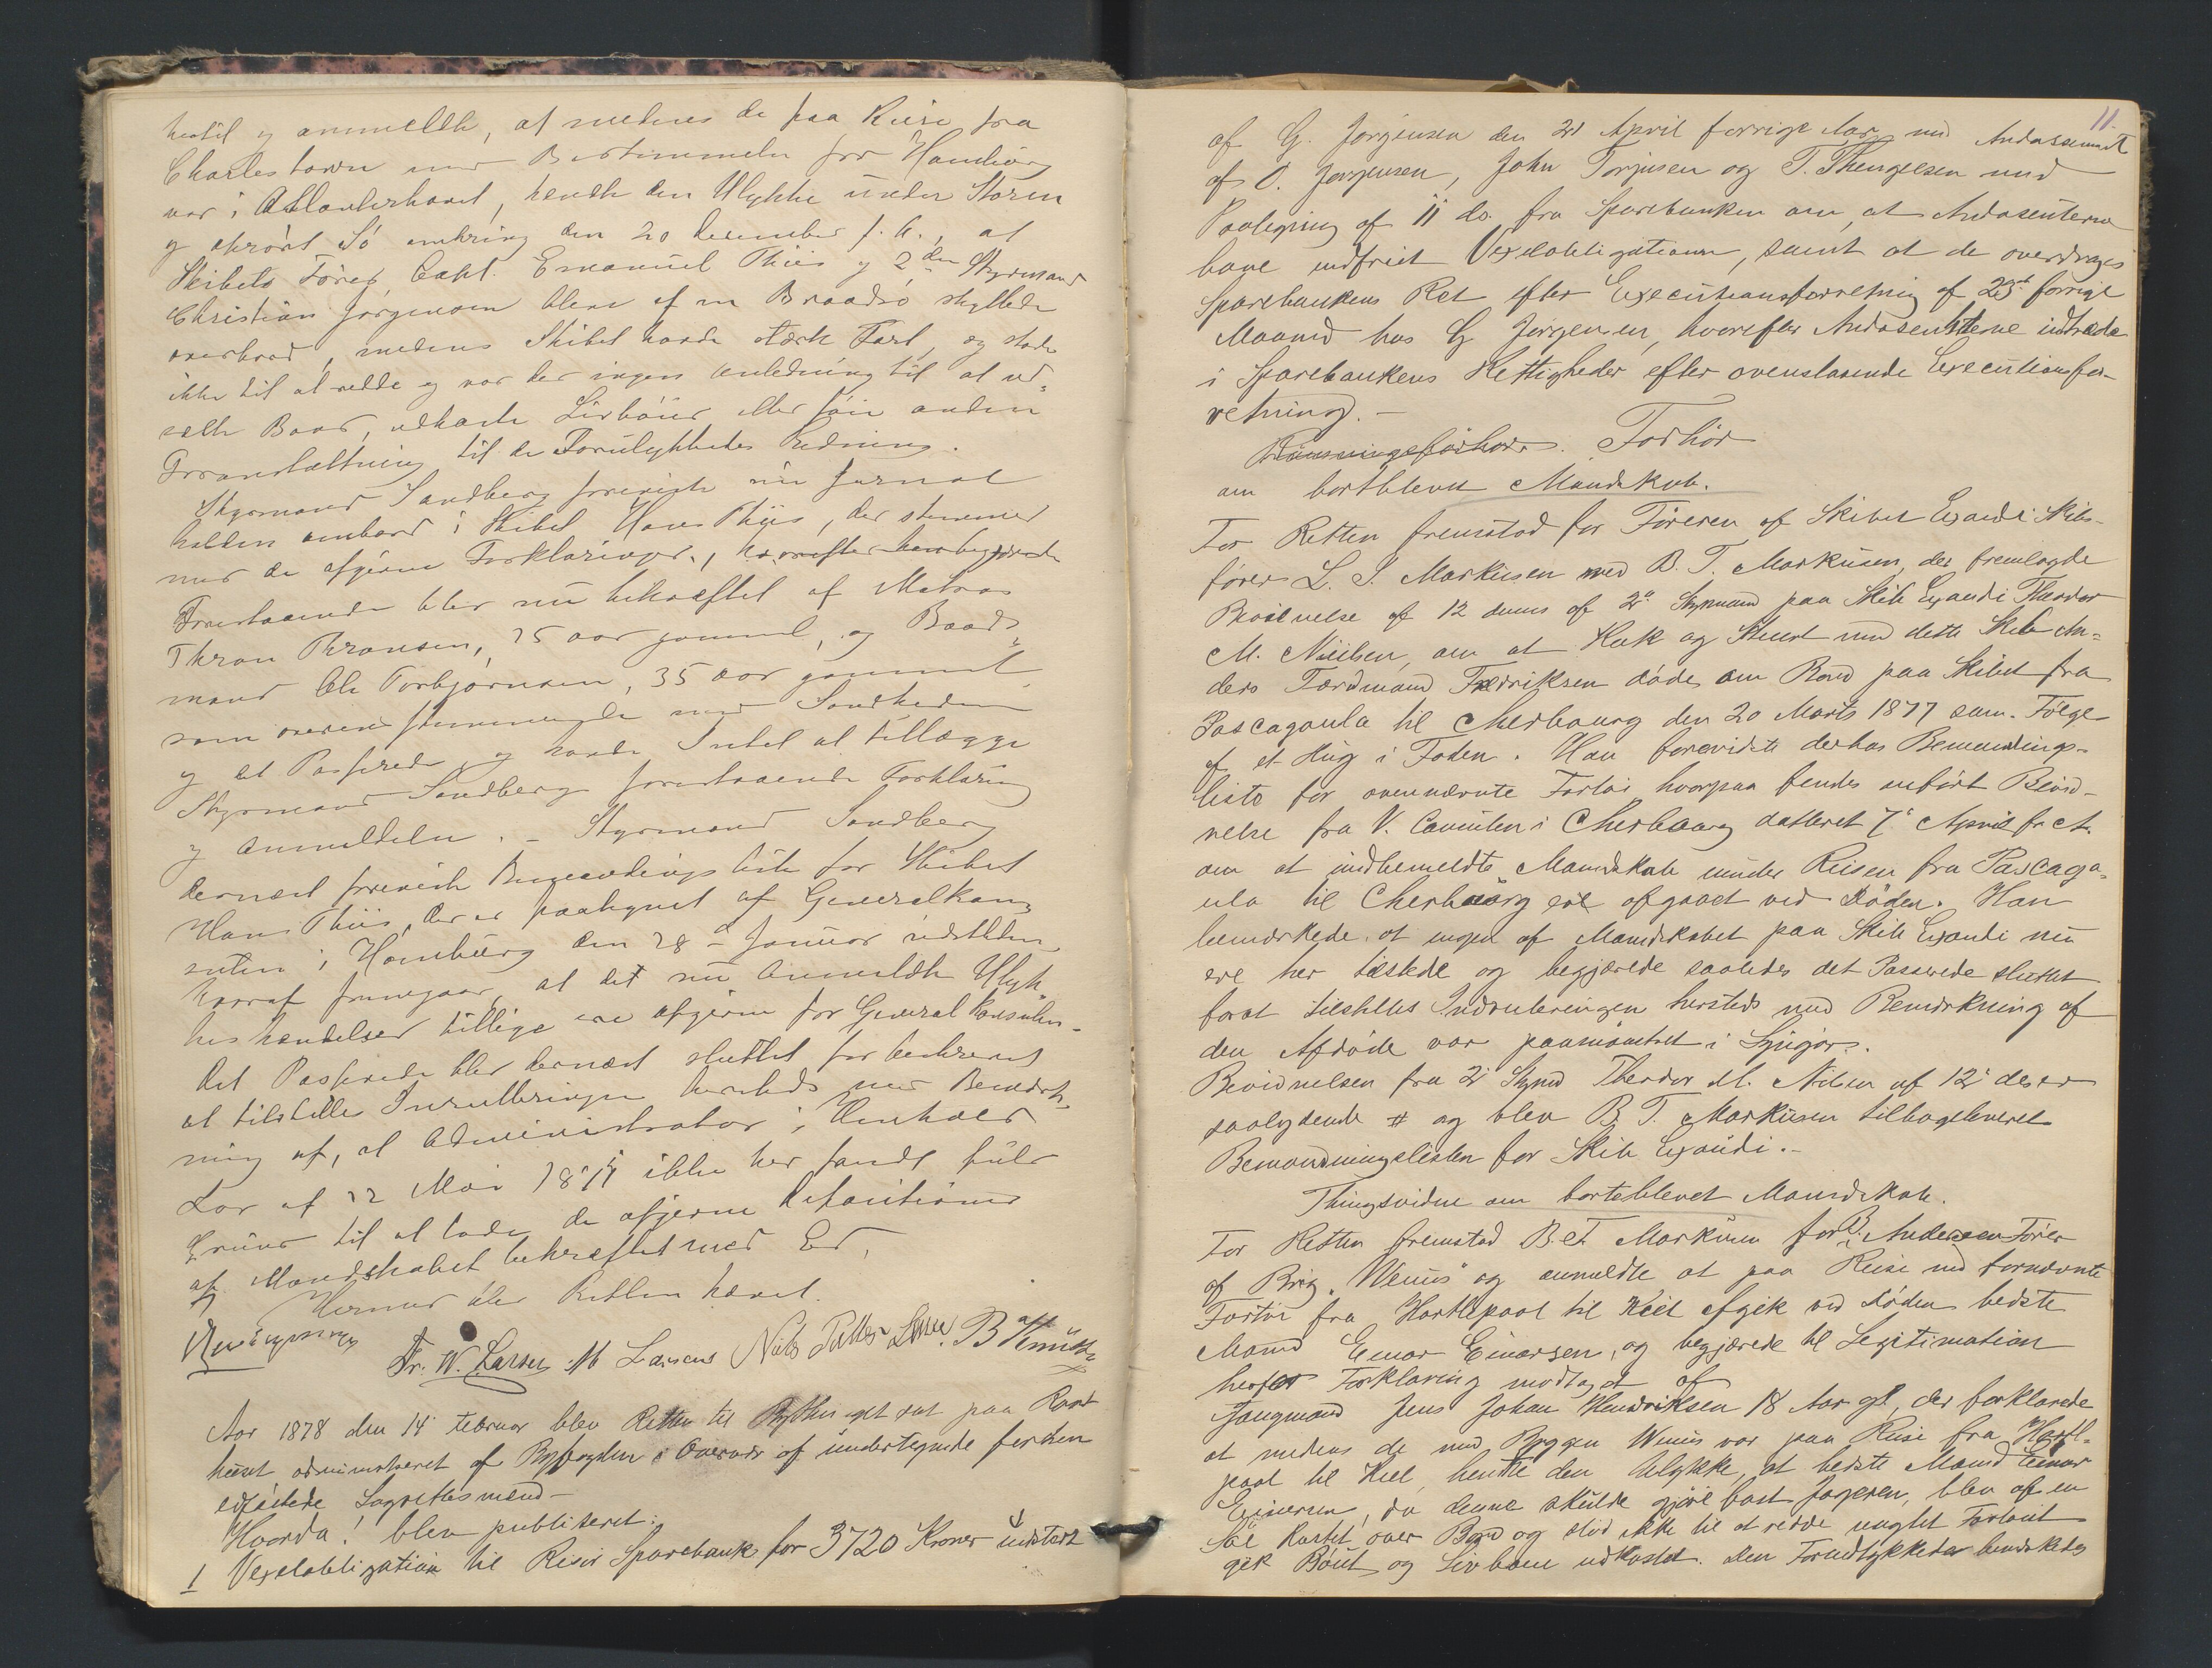 hertil og anmeldte, at medens de paa Reise fra
Charlestown med Bestemmelse for Hamburg
var i Atlanterhavet, hendte den Ulykke under Storm
og oprørt Sö omkring den 20 December f. A., at
Skibets Förer, Capt. Emanuel Thiis og 2den Styrmand
Christian Jörgensen bleve af en Braadsö skyllede
overbord, medens Skibet havde stærk Fart, og stode
ikke til at redde og var der ingen Anledning til at ud-
sætte Baad, udkaste Livböier eller föie anden
Foranstaltning til de Forulykkedes Redning.
Styrmand Sandberg foreviste nu Jurnal
holden ombord i Skibet Hans Thiis, der stemmer
med de afgivne Forklaringer, hvorefter han begjærede
Forestaaende blev nu bekræftet af Matros
Thron Thronsen, 25 aar gammel, og Baads-
mand Ole Torbjørnsen, 35 aar gammel
som overensstemmende med Sandheden
og det Passerede og havde Intet at tillægge
Styrmand Sandbergs forestaaende Forklaring
og Anmeldelse. – Styrmand Sandberg
dernæst foreviste Bemandingsliste for Skibet
Hans Thiis, der er paategnet af Generalkon-
sulen i Hamburg den 28de Januar sidstleden
hvoraf fremgaar, at det nu Anmeldte Ulyk-
keshændelser tillige ere afgivne for General Konsulen-
Det Passerede blev dernæst sluttet for beskrevet
at tilstilles Inrulleringen hersteds med Bemærk-
ning af, at Administrator i Henhold
Lov af 22 Mai 1875 ikke her fandt fuld
Grund til at lade de afgivne Depositioner
af Mandskabet bekræftet med Ed.
Hermed blev Retten hævet.
Fr. W. Larsen M Larsens Nils Petter B Knutsen
Aar 1878 den 14 Februar blev Retten til Bythinget sat paa Raad
huset administreret af Byfogden i Overvær af undertegnede ferden
edfæstede Lagrettesmænd –
Hvorda! blev publiseret:
1 Vexelobligation til Risör Sparebank for 3720 Kroner udstedt
11.
af G. Jørgensen den 21 April forrige Aar med Andossement
af O. Jørgensen, John Torjusen og T. Thengelsen med
Paategning af 11 ds. fra Sparebanken om, at Andosenterne
have indfriet Vexelobligationen, samt at de overdrages
Sparebankens Ret efter Executionsforretning af 25de forrige
Maaned hos G Jørgensen, hvorefter Andosenterne indtræde
i Sparebankens Rettigheder efter ovenstaaende Executionsfor-
retning. –
Forhör
om bortbleven Mandskab.
For Retten fremstod for Föreren af Skibet Exaudi Skibs-
förer L. S. Markusen med B. T. Markusen, der fremlagde
Bevidnelse af 12 dennes af 2n Styrmand paa Skib Exaudi Theodor
M. Nielsen, om at Kok og Stuert med dette Skib An-
ders Tordmand Fredriksen döde om Bord paa Skibet fra
Pascagoula til Cherbourg den 20 Marts 1877 som Fölge
af et Hug i Foden. Han foreviste derhos Bemandings-
liste for ovennævnte Fartöi hvorpaa fandes anfört Bevid-
nelse fra V. Consulen i Cherbourg datteret 7de April f. A.
om at indbemeldte Mandskab under Reisen fra Pascago-
ula til Cherbourg ere afgaaet ved Döden. Han
bemærkede, at ingen af Mandskabet paa Skib Exaudi nu
ere her tilstede og begjærede saaledes det Passerede sluttet
forat tilstilles Indrulleringen hersteds med Bemærkning af
den Afdöde var paamönstret i Lyngör.
Bevidnelsen fra 2' Stymd Theodor M. Nilsen af 12' ds er
saalydende # og blev B. T. Markusen tilbageleveret
Bemandningslisten for Skib Exaudi. –
Thingsvidne om bortblevet Mandskab.
For Retten fremstod B. T. Markusen for B. Andersen Förer
af Brig "Wenus" og anmeldte at paa Reise med fornævnte
Fartöi fra Hartlepool til Kiel afgik ved Döden bedste
Mand Einar Einarsen, og begjærede til Legitimation
herfor Forklaring modtaget af
Jungmand Jens Johan Hendriksen 18 Aar gl, der forklarede
at medens de med Briggen Wenus var paa Reise fra Hartl-
pool til Kiel, hendte den Ulykke, at bedste Mand Einar
Einarsen, da denne skulde gjöre fast Jageren, blev af en
Sö kastet over Bord og stod ikke til at redde uagtet Fartöiet
gik Bout og Livböie udkastet. Den Forulykkedes bemærkedes